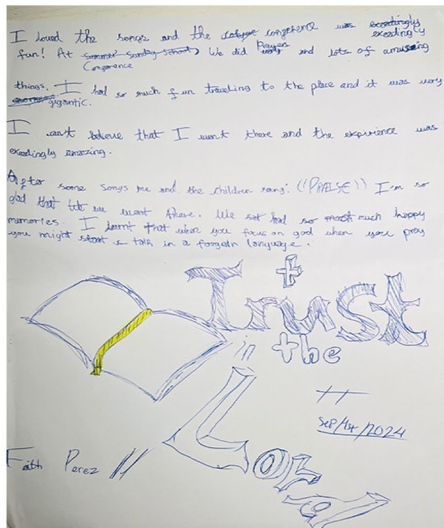 I loved the songs and the conference was exceedingly
fun! At Conference, We did Prayer and lots of amusing
things. I had so much fun traveling to the place and it was very
gigantic.
I can't believe that I went there and the experience was
exedingly amazing.
After some songs me and the children sang: ((PRAISE)) I'm so
glad that we went there. We had so much happy
memories. I learnt that when you focus on god when you pray
you might talk in a forgain language.
Trust
in the
Lord
Sep/14/2024
Faith Perez